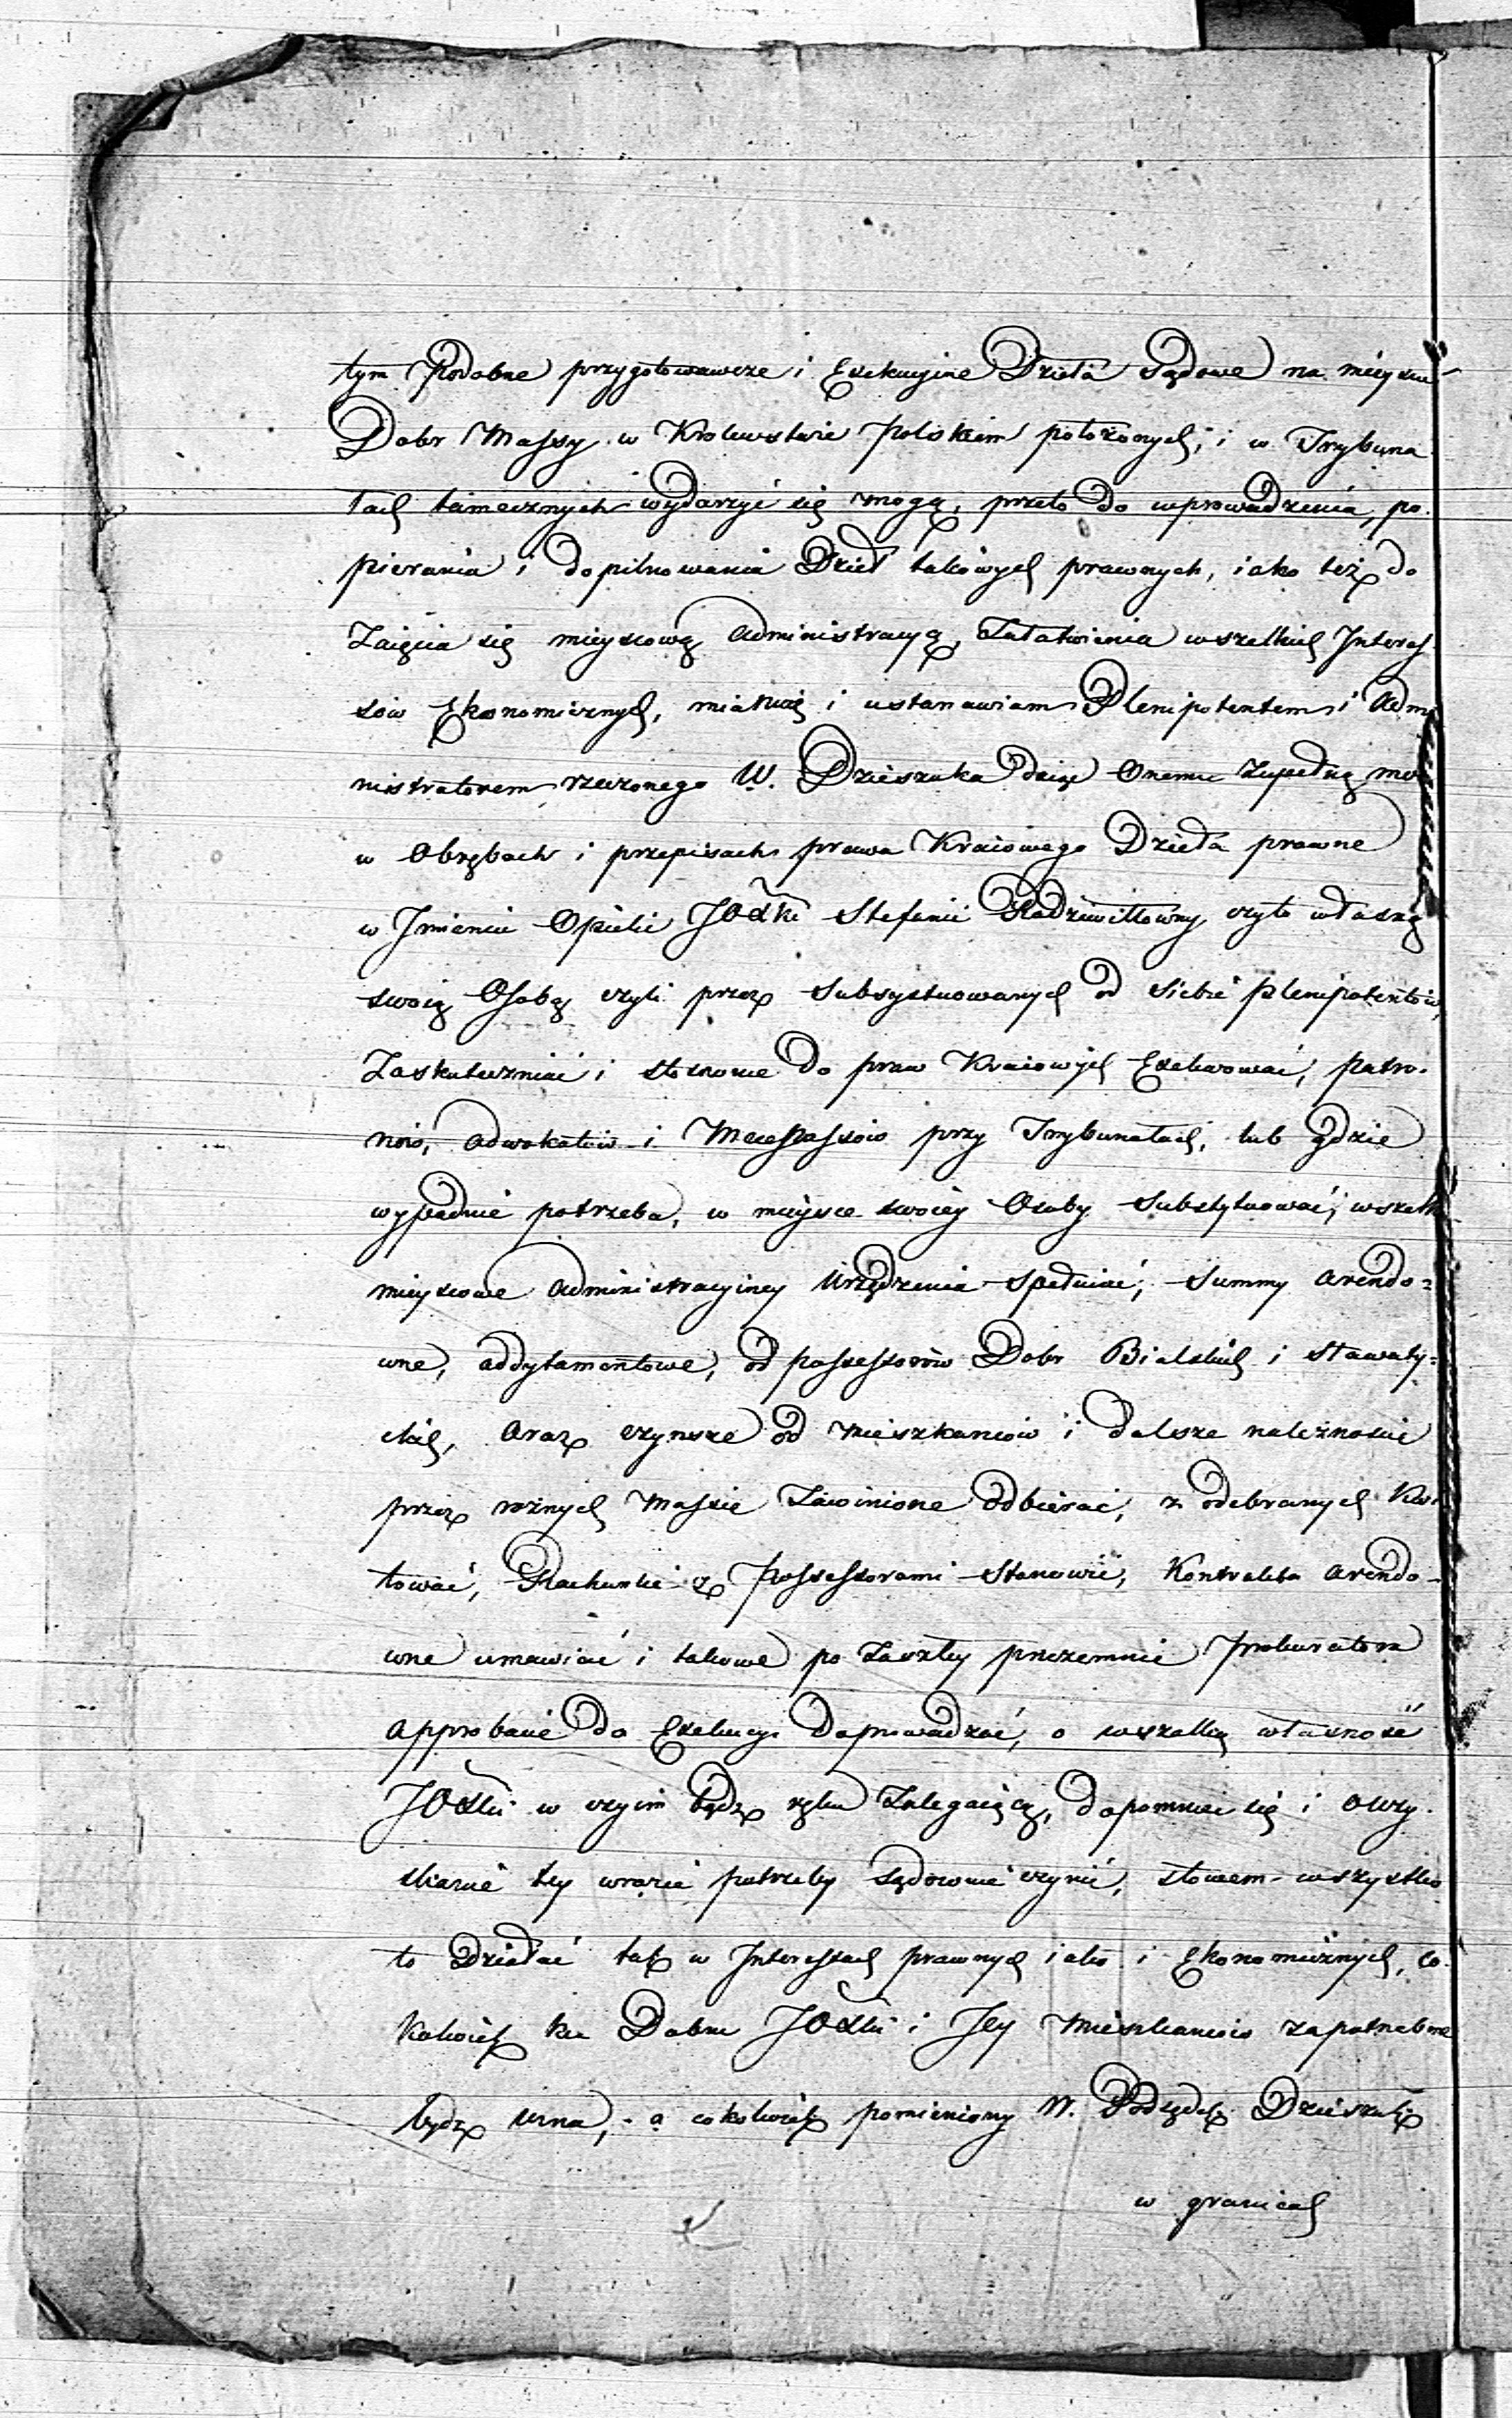 tym podobne przygotowawcze i Exekucyine Dzieła Sądowe na mieyscu
Dobr Massy w Krolewstwie Polskiem położonych, i w Trybuna
łach tamecznych wydarzyć się mogą, przeto do wprowadzenia, po-
pierania i dopilnowania Dzieł takowych prawnych, iako też do
Zaięcia się mieyscową Administracyą, Załatwienia wszelkich Interes
sow Ekonomicznych, mianuię i ustanawiam Plenipotentem i Admi
nistratorem rzeczonego W. Dzieszuka daiąc Onemu zupełną moc
w Obrębach i przepisach prawa Kraiowego Dzieła prawne
w Imieniu Opieki JOXki Stefanii Radziwiłłowny czyto własną
swoią Osobą czyli przez Subsystuowanych od Siebie plenipotentów
Zaskuteczniać i stosowne do praw Kraiowych Exekwować, patro-
nów, Adwokatów i Mecenassow przy Trybunałach, lub gdzie
wypadnie potrzeba, w mieysce swoiey Osoby Substytuować, wszelk
mieyscowe Administracyiney Urządzenia spełniać, Summy arendo-
wne, addytamentowe, od possessorow Dobr Bialskich i Sławaty-
ckich, oraz czynsze od mieszkancow i dalsze należnoście
przez rożnych Massie Zawinione odbierać, z odebranych Kwi
tować, Rachunki z possessorami stanowić, Kontrakta arendo-
wne umawiać i takowe po zaszłey przezemnie prokuratora
approbacie do Exekucyi Doprowadzać, o wszelką własność
JOXki w czyim bądź ręku Zalegaiącą, dopomnieć się i o uzy-
skanie tey wrazie potrzeby Sądownie czynić, słowem wszystko
to Działać tak w Interessach prawnych iako i Ekonomicznych, co-
kolwiek ku Dobru JOXki i Jey Mieszkancow zapotrzebne
bydź uzna, a cokolwiek pomieniony W. Podsędek Dzieszuk
w granicach